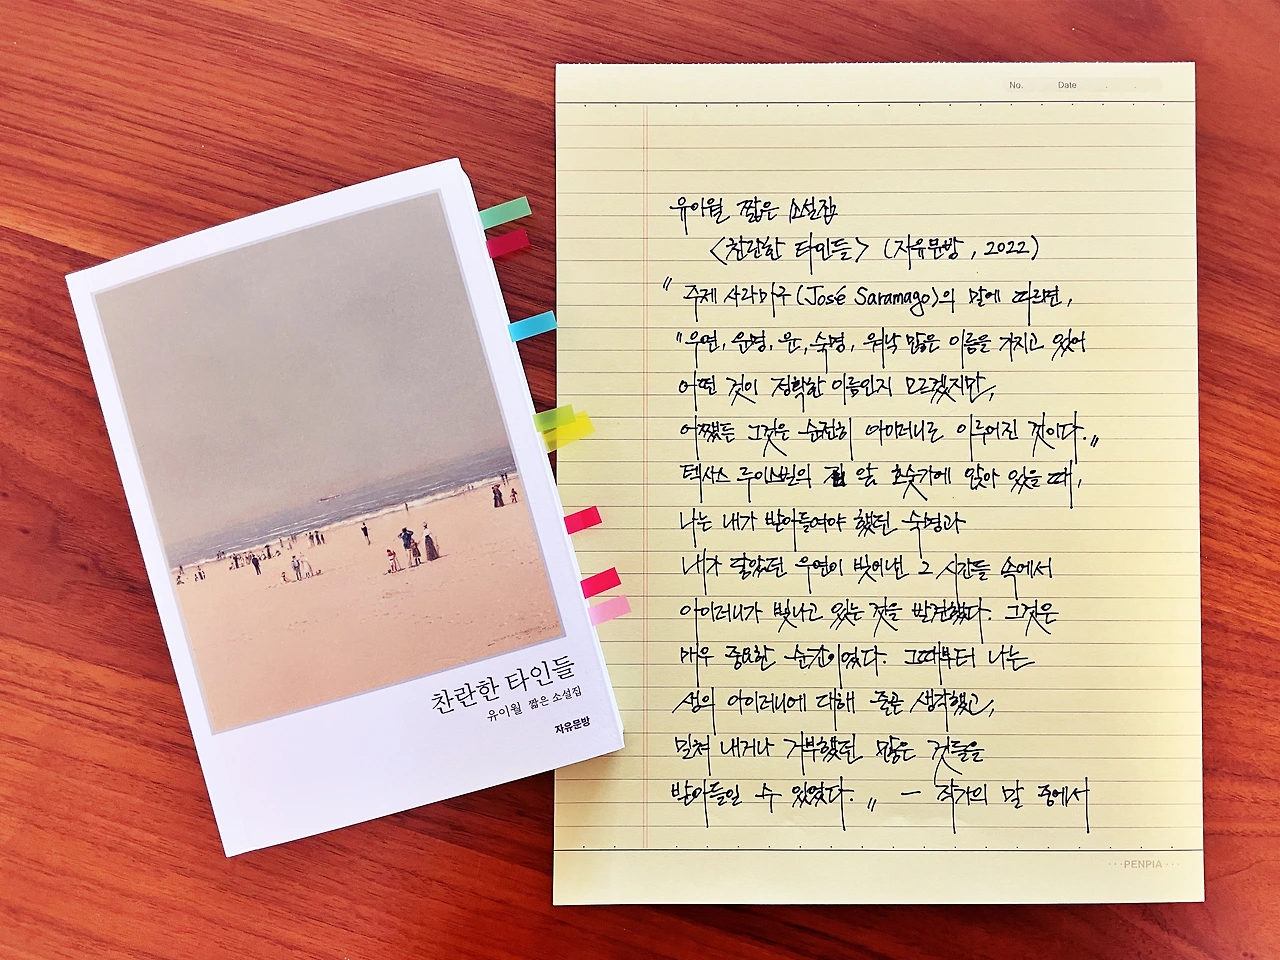 찬란한 타인들
유이월 짧은 소설집
자유문방
No. Date
유이월 짧은 소설집
<찬란한 타인들> (자유문방, 2022)
"주제 사라마구(José Saramago)의 말에 따르면,
"우연, 운명, 운, 숙명, 워낙 많은 이름을 가지고 있어
어떤 것이 정확한 이름인지 모르겠지만,
어쨌든 그것은 순전히 아이러니로 이루어진 것이다."
텍사스 루이스빌의 앞 호숫가에 앉아 있을 때,
나는 내가 받아들여야 했던 숙명과
내가 닿았던 우연이 빚어낸 그 시간들 속에서
아이러니가 빛나고 있는 것을 발견했다. 그것은
매우 중요한 순간이었다. 그때부터 나는
생의 아이러니에 대해 줄곧 생각했고,
밀쳐 내거나 거부했던 많은 것들을
받아들일 수 있었다." - 작가의 말 중에서
PENPIA